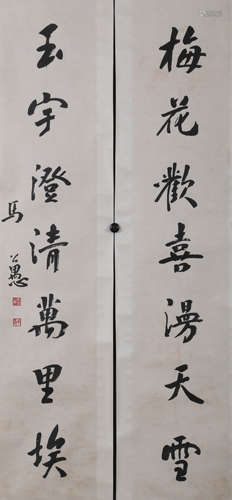 梅花歡喜漫天雪
玉宇澄清萬里埃
馬公愚